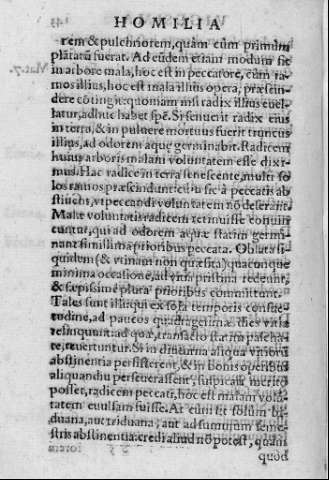 HOMILIA
rem & pulchriorem, quàm cùm primùm
plãtatũ fuerat. Ad eũdem etiam modum sic
in arbore mala, hoc est in peccatore, cùm ra-
mos illius, hoc est mala illius opera, præscin-
dere cõtingit: quoniam nisi radix illius euel-
latur, adhuc habet spẽ. Si senuerit radix eius
in terra, & in puluere mortuus fuerit truncus
illius, ad odorem aquę germinabit. Radicem
huius arboris malam voluntatem esse dixi-
mus. Hac radice in terra senescente, multi so
los ramos præscindunt: cùm sic à peccatis ab
stinẽt, vt peccandi voluntatem nõ deserant.
Malę voluntatis radicem retinuisse conuin
cuntur, qui ad odorem aquæ statim germi-
nant simillima prioribus peccata. Oblata si-
quidem (& vtinam non quæsita) quacunque
minima occasione, ad vitia pristina redeunt,
& sæpissimè plura prioribus committunt.
Tales sunt illi, qui ex sola temporis consue-
tudine, ad paucos quadragesimæ dies vitia
relinquunt: ad quæ, transacto statim pascha-
te, reuertuntur. Si in diuturna aliqua vitiorũ
abstinentia persisterent, & in bonis operibus
aliquandiu perseuerassent, suspicari meritò
posset, radicem peccati, hoc est malam volũ-
tatem euulsam fuisse. At cùm sit solùm bi-
duana, aut triduana, aut ad summum seme-
stris abstinentia: credi aliud nõ potest, quàm
quod